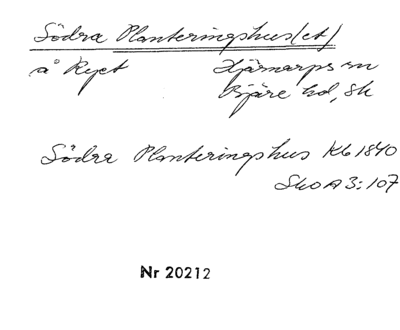 Södra Planteringshus(et)
å Ryet Hjärnarps sn
Bjäre hd, Sk
Södra Planteringshus Kb 1840
SkOA3:107
Nr 20212